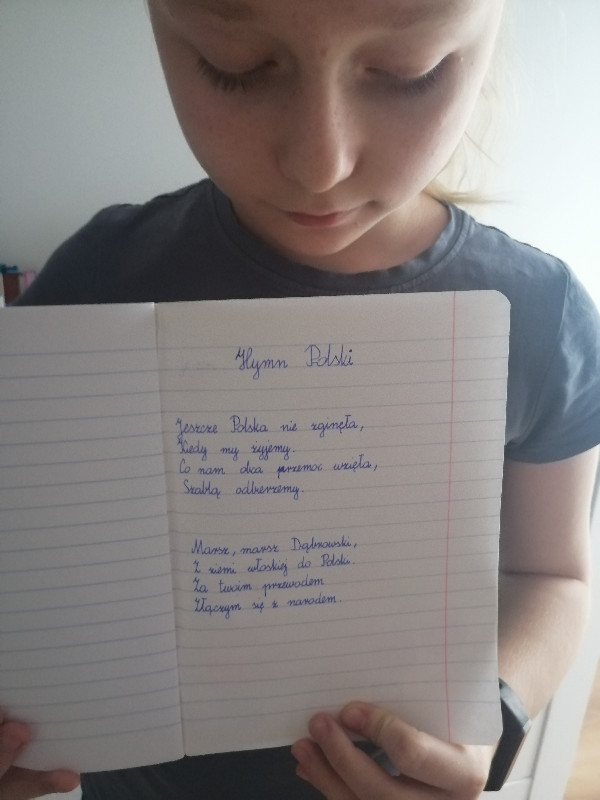 Hymn Polski
Jeszcze Polska nie zginęła,
Kiedy my żyjemy.
Co nam obca przemoc wzięła,
Szablą odbierzemy.
Marsz, marsz Dąbrowski,
Z ziemi włoskiej do Polski.
Za twoim przewodem
Złączym się z narodem.